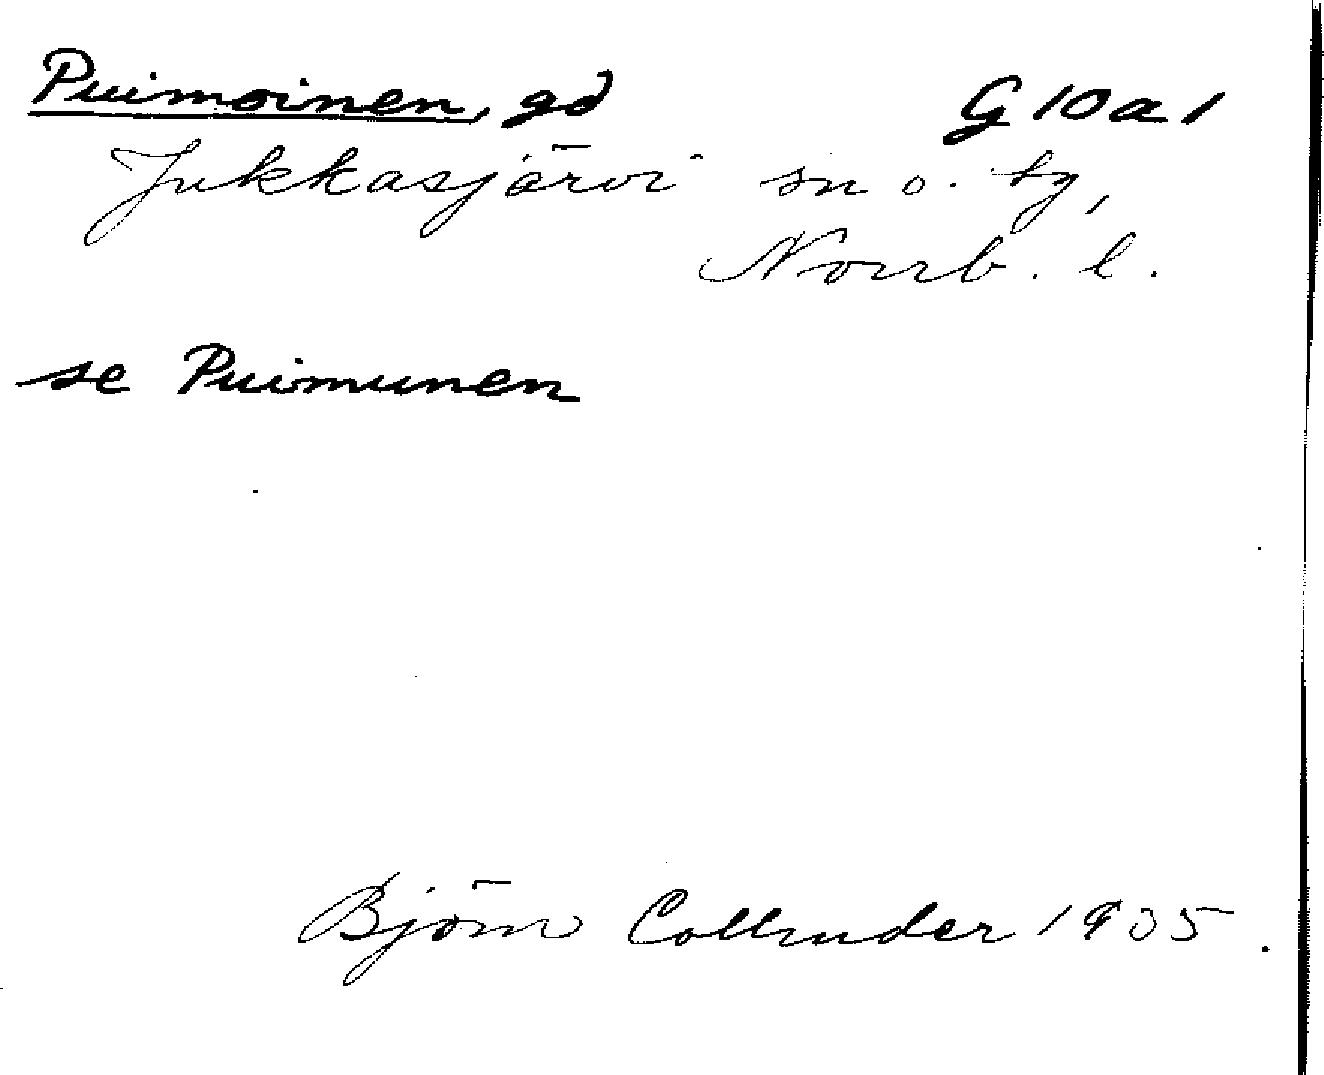 Puimoinen, gd G 10 a 1
Jukkasjärvi sn o. tg,
Norrb. l.
se Puimunen
Björn Collinder 1935.